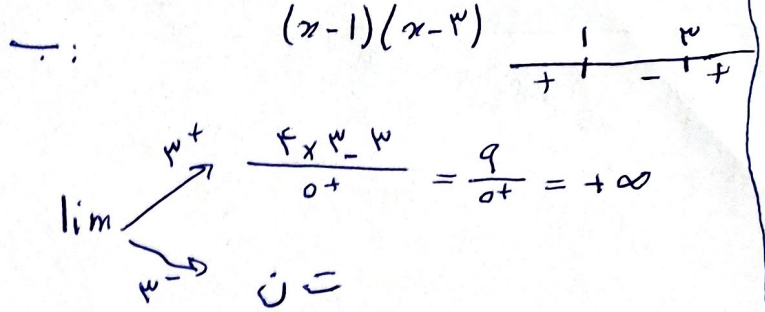 ب: (x-1)(x-۳)
۱ ۳
+ - +
lim
۳+ (۴×۳-۳)/0+ = ۹/0+ = +∞
۳- ت ن